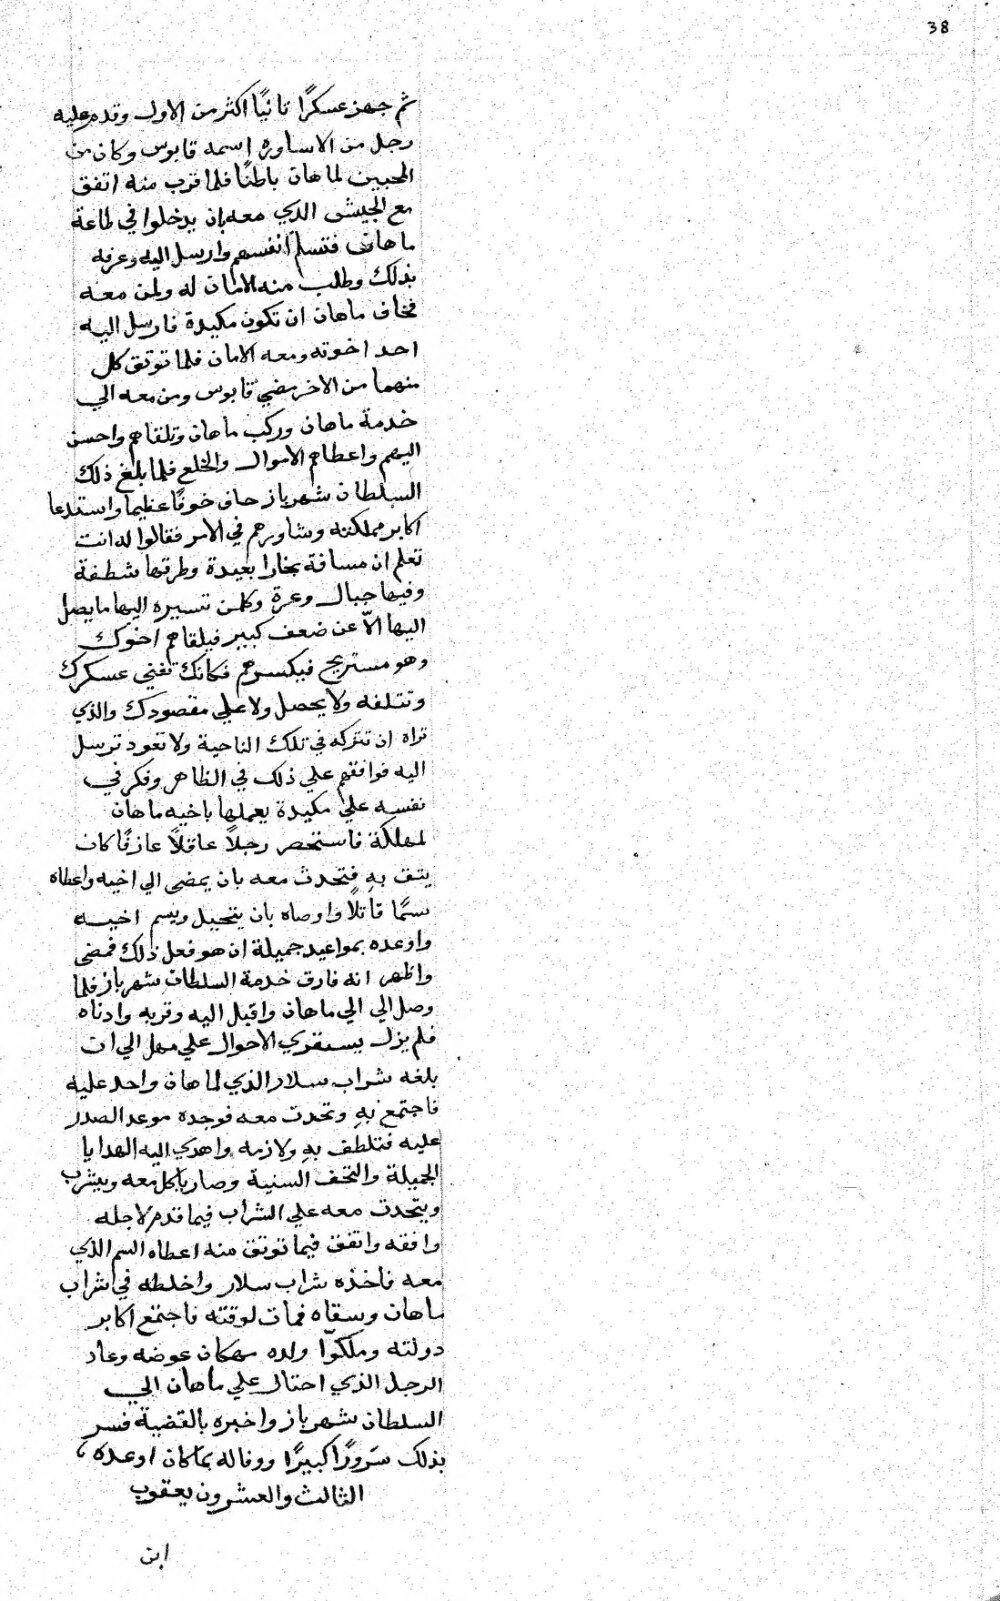 38
ثم جهز عسكرًا ثانيًا اكثر من الاول وقدم عليه
رجل من الاساوره اسمه قابوس وكان من
المحبين لماهان باطنًا فلما قرب منه اتفق
مع الجيش الذي معه بان يدخلوا في طاعة
ماهان فتسلم انفسهم وارسل اليه وعرفه
بذلك وطلب منه الامان له ولمن معه
فخاف ماهان ان تكون مكيدة فارسل اليه
احد اخوته ومعه الامان فلما توثق كل
منهما من الاخر مضي قابوس ومن معه الي
خدمة ماهان وركب ماهان وتلقاهم واحسن
اليهم واعطاهم الاموال والخلع فلما بلغ ذلك
السلطان شهرباز خاف خوفًا عظيما واستدعا
اكابر مملكته وشاورهم في الامر فقالوا له انت
تعلم ان مسافة بخارا بعيدة وطرقها شظفة
وفيها جبال وعرة وكلمن تسيره اليها ما يصل
اليها الاّ عن ضعف كبير فيلقاهم اخوك
وهو مستريح فيكسرهم فكانك تفني عسكرك
وتتلفه ولا يحصل ولا علي مقصودك والذي
نراه ان تتركه في تلك الناحية ولا تعود ترسل
اليه فوافقهم علي ذلك في الظاهر وفكر في
نفسه علي مكيدة يعملها باخيه ماهان
لمهلكة فاستحضر رجلاً عاقلاً عارفًا كان
يثق به فتحدث معه بان يمضي الي اخيه واعطاه
سمًا قاتلاً واوصاه بان يتحيل ويسم اخيه
واوعده بمواعيد جميلة ان هو فعل ذلك فمضي
واظهر انه فارق خدمة السلطان شهرباز فلما
وصل الي الي ماهان واقبل اليه وقربه وادناه
فلم يزل يستقري الاحوال علي مهل الي ان
بلغه شراب سلار الذي لماهان واحد عليه
فاجتمع به وتحدث معه فوجده موعد الصدر
عليه فتلطف به ولازمه واهدي اليه الهدايا
الجميلة والتحف السنية وصار ياكل معه ويشرب
ويتحدث معه علي الشراب فيما قدم لاجله
وافقه واتفق فيما توثق منه اعطاه السم الذي
معه فاخذه شراب سلار واخلطه في شراب
ماهان وسقاه فمات لوقته فاجتمع اكابر
دولته وملكوّا ولده مهكان عوضه وعاد
الرجل الذي احتال علي ماهان الي
السلطان شهرباز واخبره بالقضية فسر
بذلك سَرورًا كبيرًا ووفا له بما كان اوعده
الثالث والعشرون يعقوب
ابن